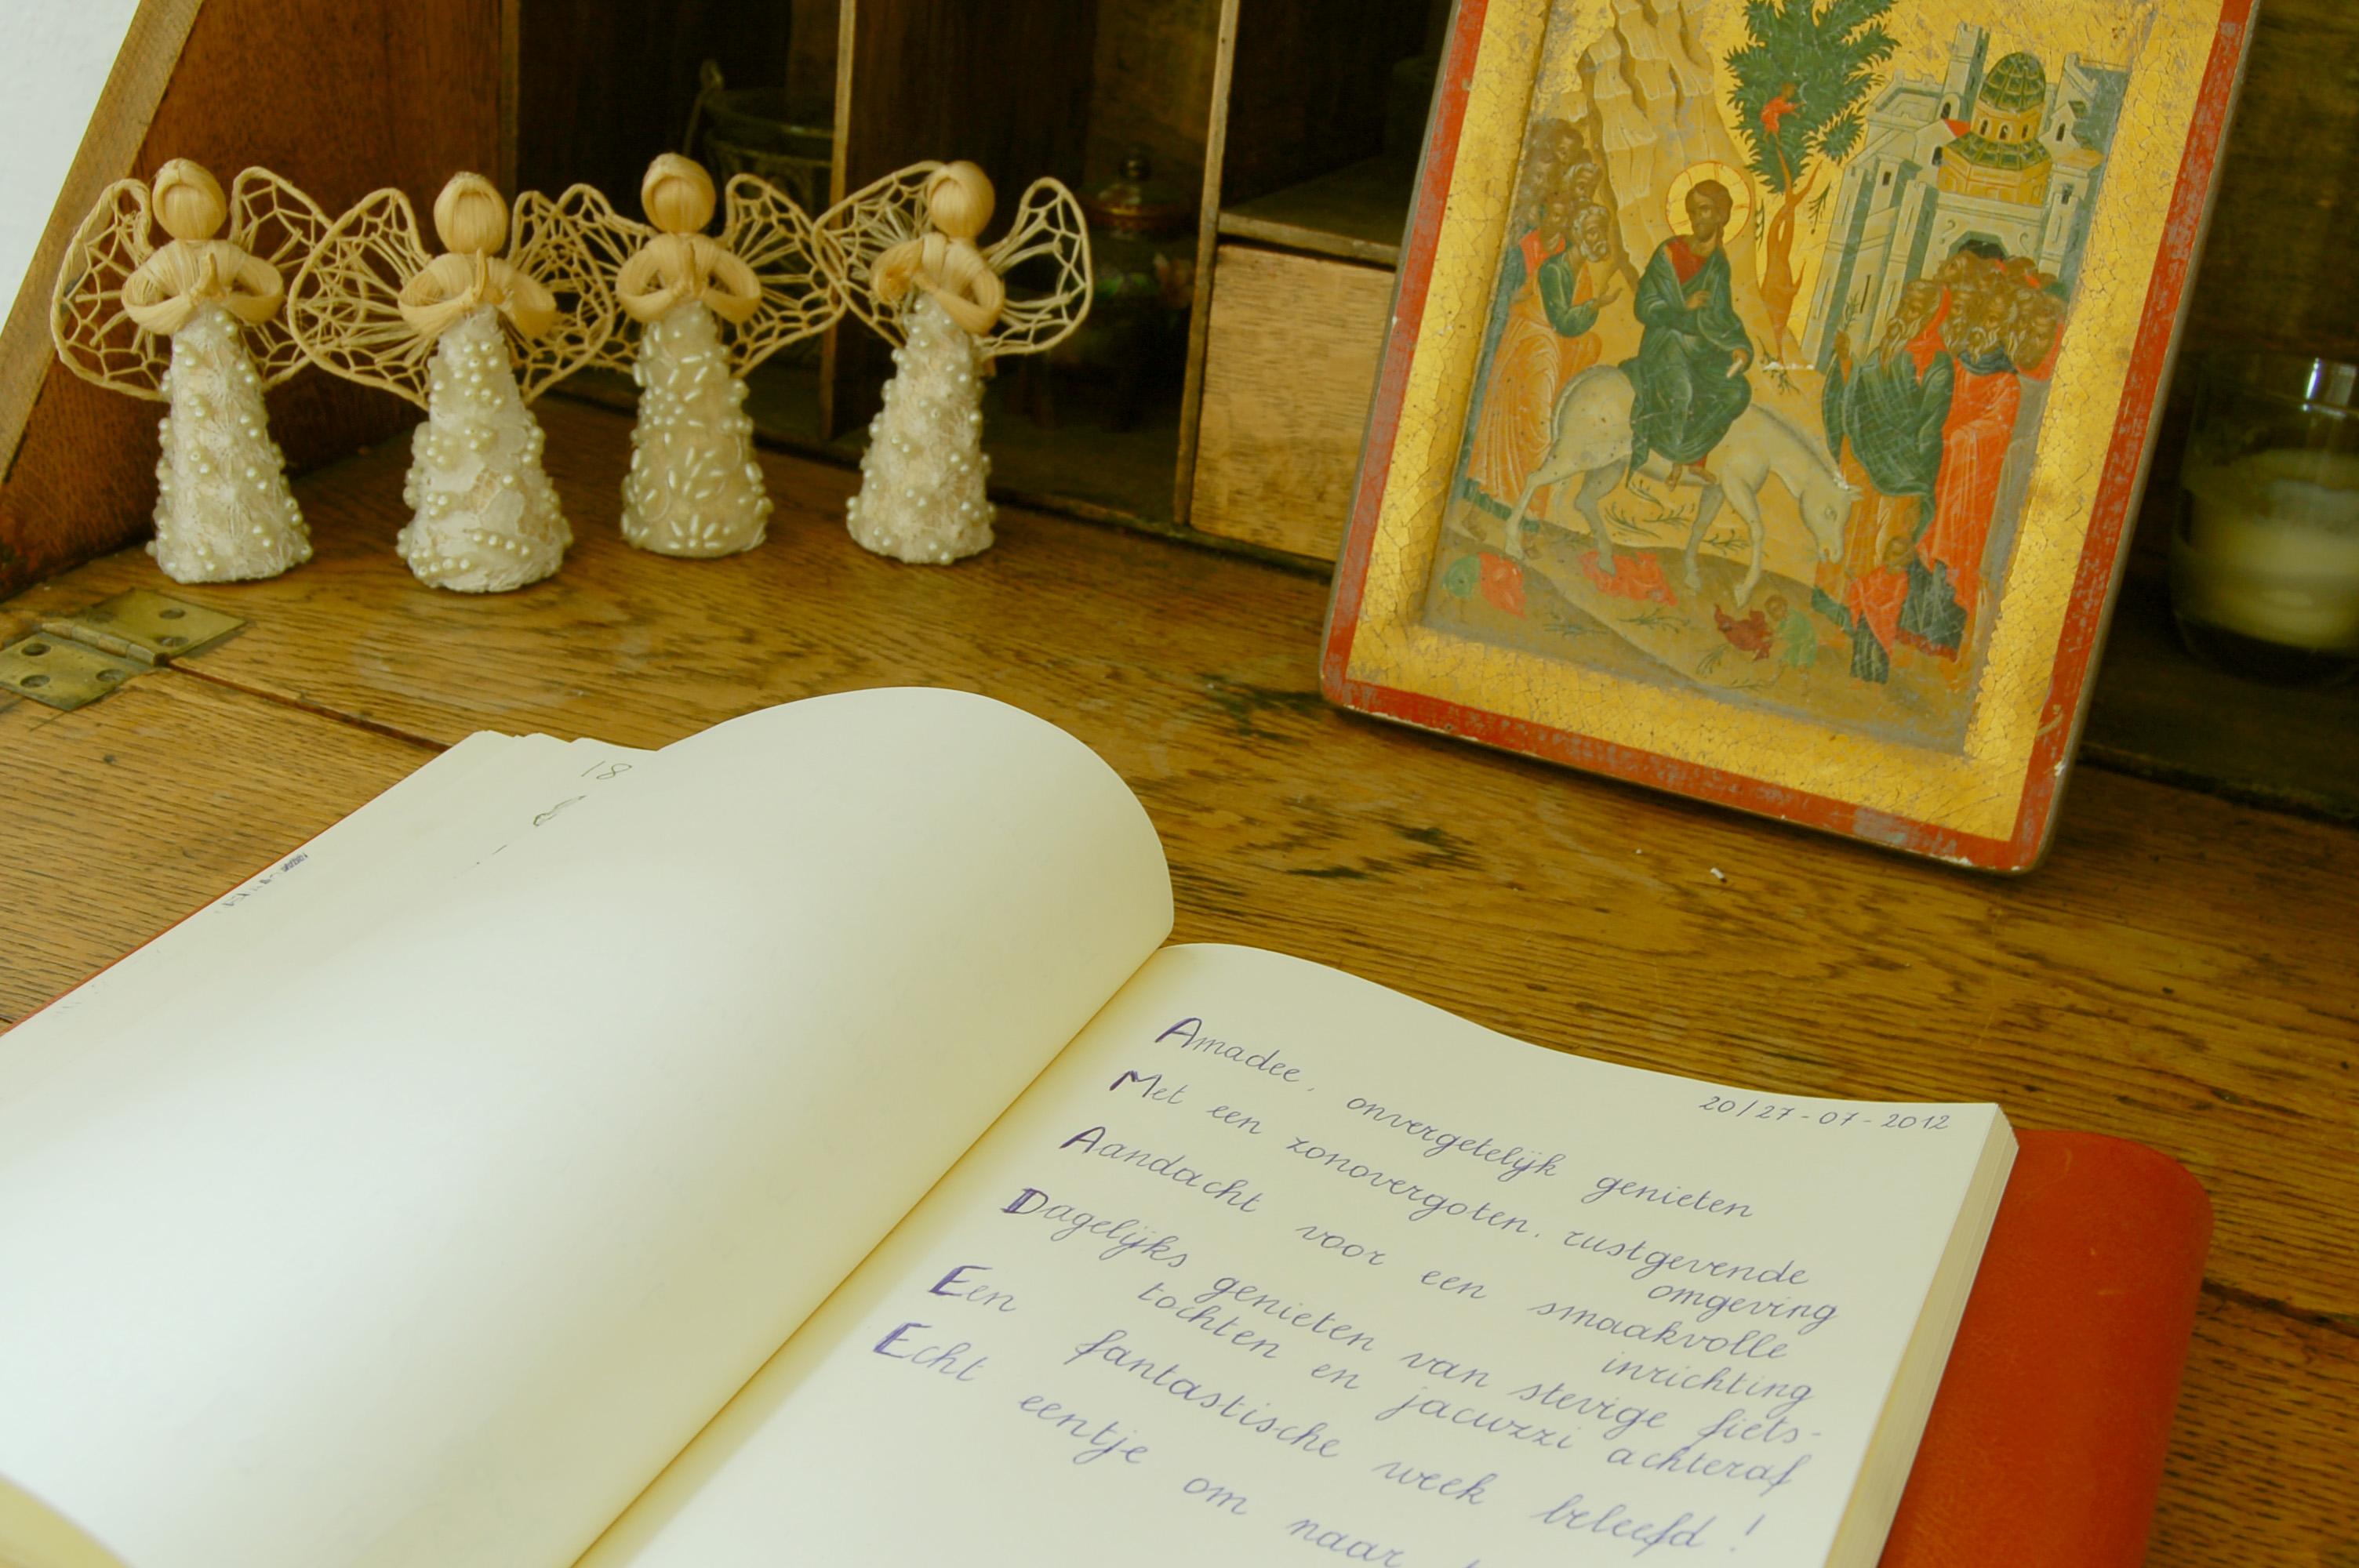 20/27-07-2012
Amadee, onvergetelijk genieten
Met een zonovergoten, rustgevende
omgeving
Aandacht voor een smaakvolle
inrichting
Dagelijks genieten van stevige fiets-
tochten en jacuzzi achteraf
Een fantastische week beleefd!
Echt eentje om naar
18